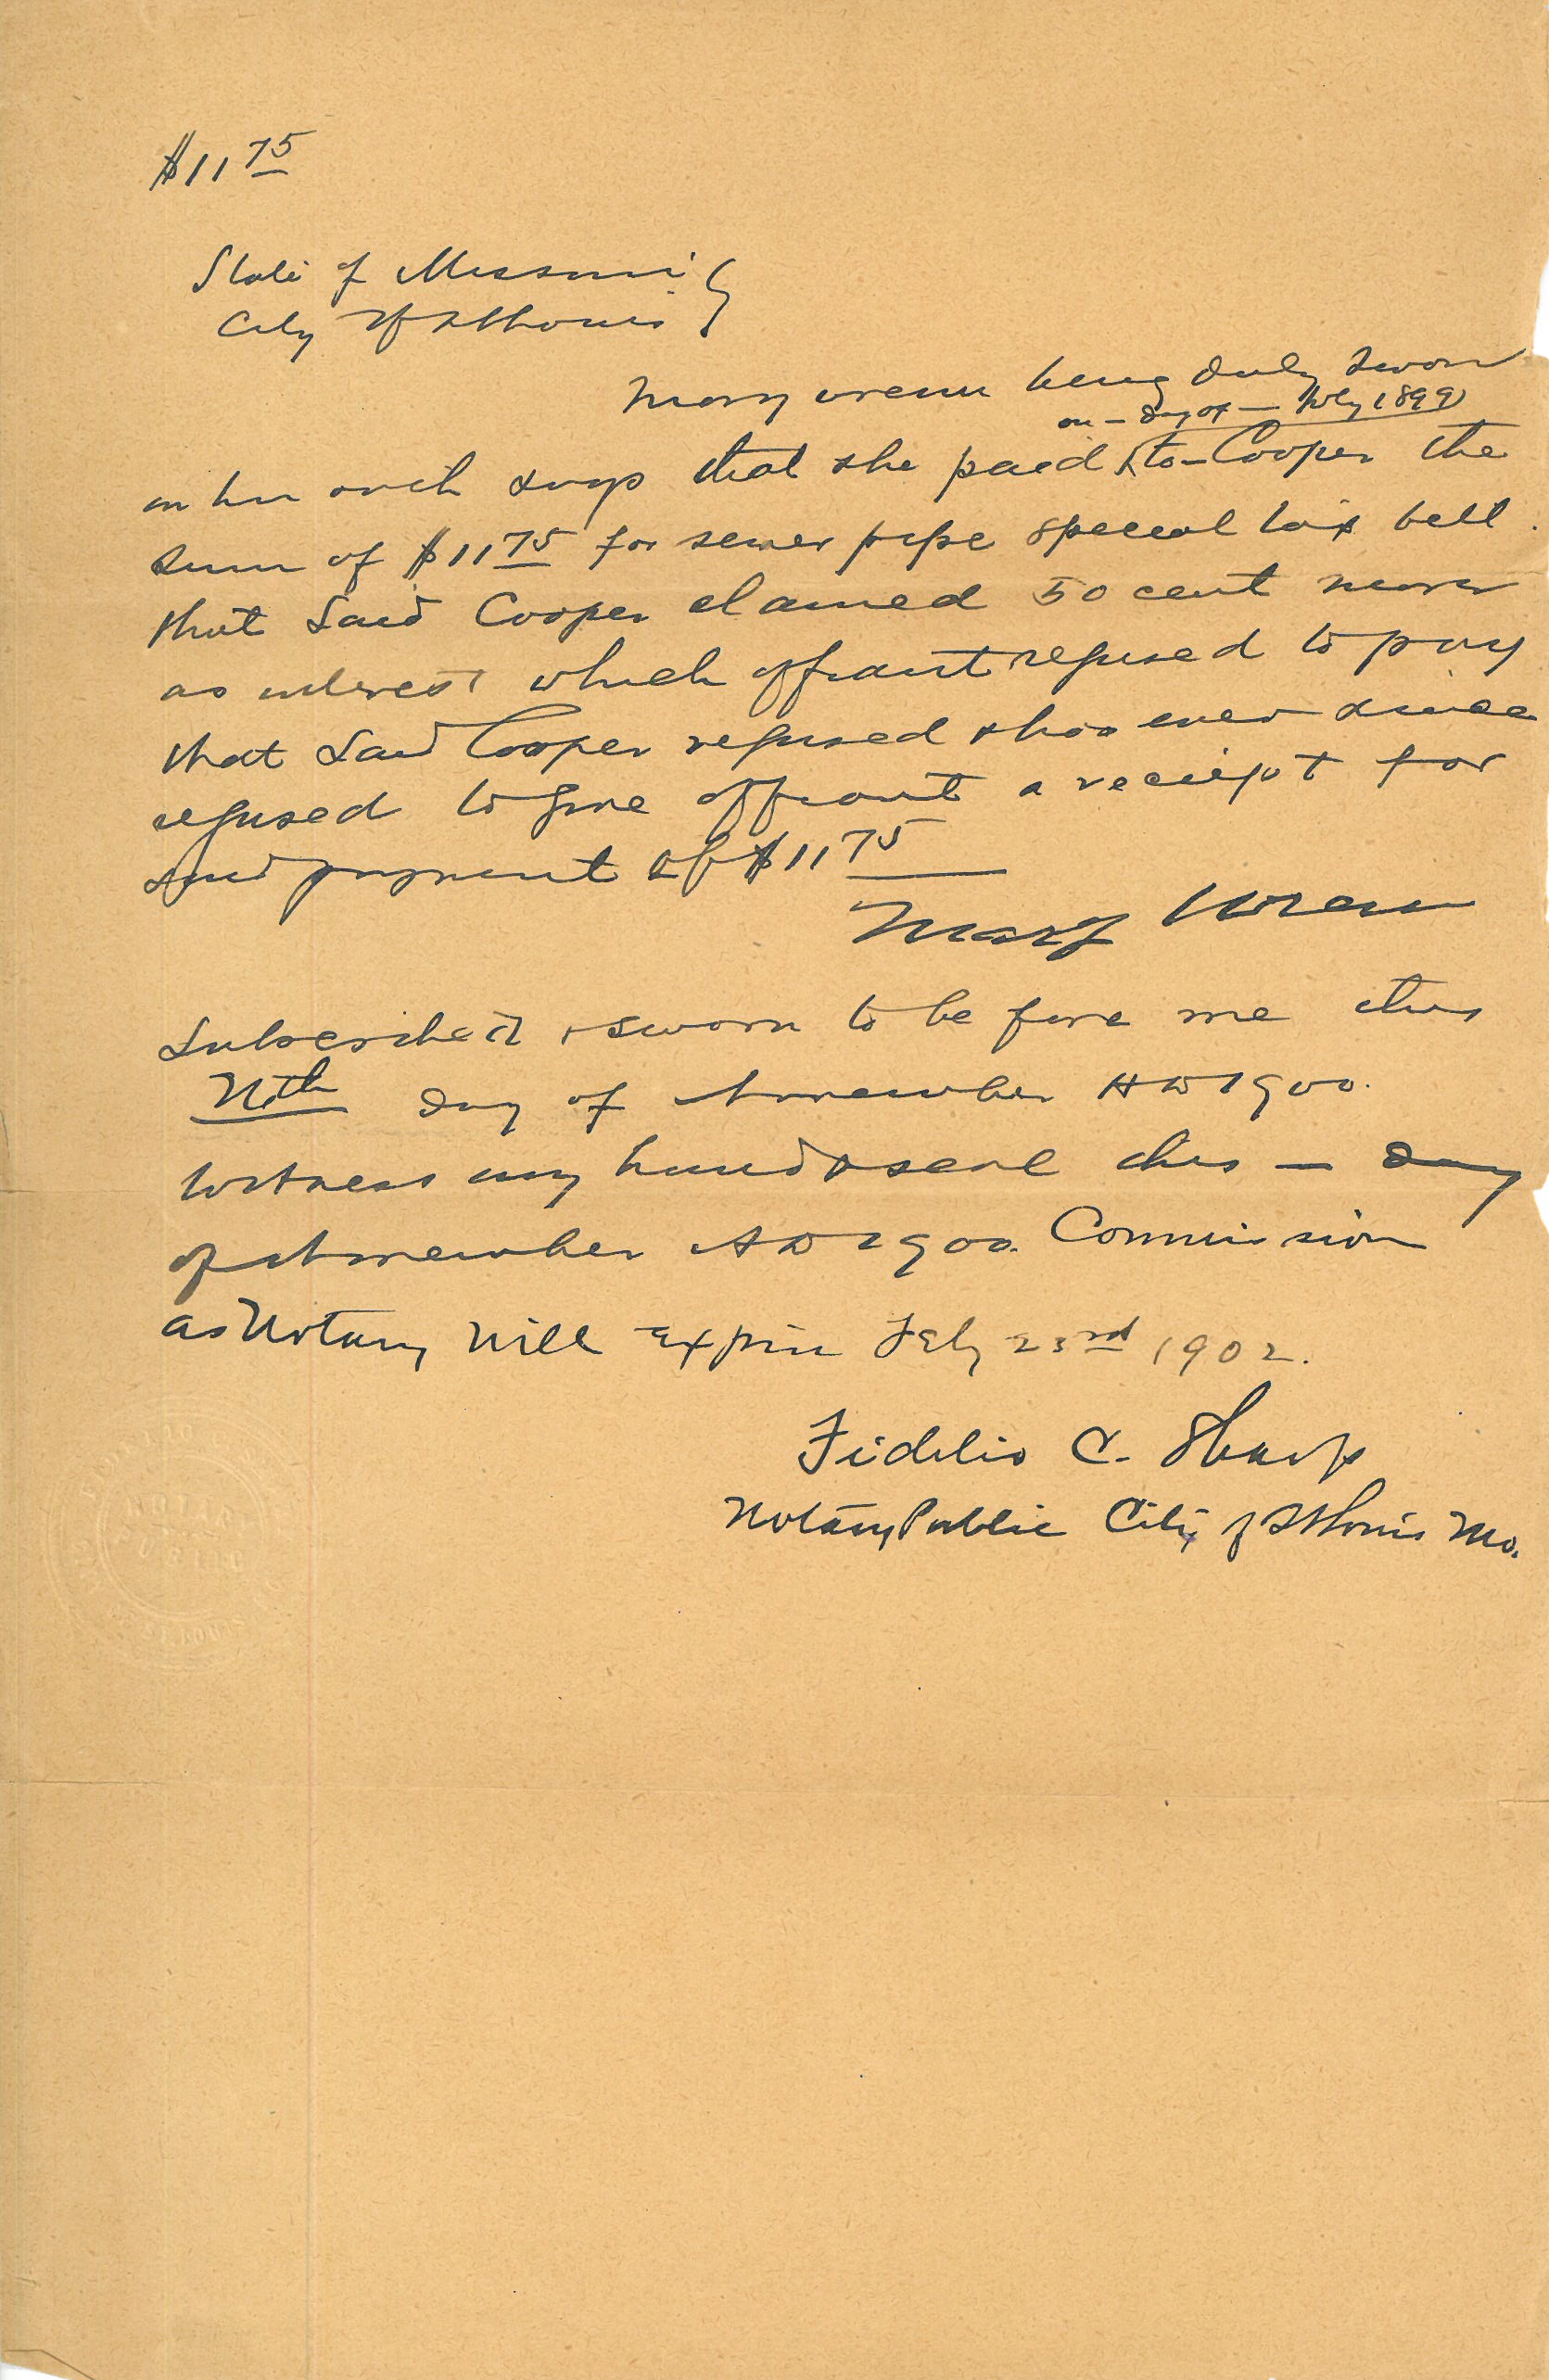 $11 75
State of Missouri
City of St Louis
Mary Wrenn being duly sworn
on — day of — July 1899
on her oath says that she paid to — Cooper the
sum of $11 75 for sewer pipe special tax bill.
that said Cooper claimed 50 cent more
as interest which affiant refused to pay
that said Cooper refused & has ever since
refused to give affiant a receipt for
said payment of $11 75
Mary Wrenn
Subscribed & sworn to before me this
day of November AD 1900.
Witness my hand & seal this — day
of November AD 1900. Commission
as Notary will Expire Feby 23rd 1902.
Fidelio C. Sharp
Notary Public City of St Louis Mo.